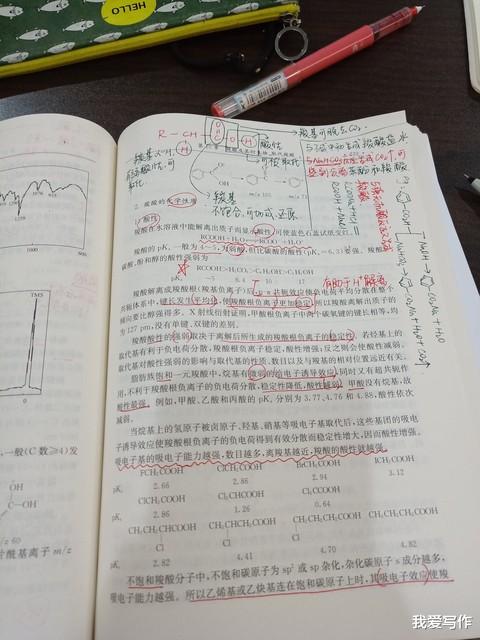 HELLO
R — CH
羧基可脱去CO₂
酸性
可被取代
羧基
不饱和,可加成/还原
与强碱中和生成羧酸盐 水
与NaHCO₃反应生成CO₂↑,可
鉴别、分离 苯酚和羧酸
强酸
COONa+HCl
COOH + NaCl
m/z 122
2. 羧酸的化学性质
1) 酸性
羧酸在水溶液中能解离出质子而显示酸性,可使蓝色石蕊试纸变红。
RCOOH+H₂O⇌RCOO⁻+H₃O⁺
羧酸的 pKₐ 一般为 4~5,为弱酸,但比碳酸的酸性(pKₐ=6.3)要强。羧酸、
碳酸、酚和醇的酸性强弱为
RCOOH>H₂CO₃>C₆H₅OH>C₂H₅OH
pKₐ ~5 6.4 10 17
有助于H⁺解离
羧酸解离成羧酸根(羧基负离子)后,p-π共轭效应使负电荷平均分散在整个
共轭体系中,键长发生平均化,使羧酸根负离子更加稳定,所以羧酸离解出质子的
倾向要比醇强得多。X射线衍射证明,甲酸根负离子中两个碳氧键的键长相等,均
为127 pm,没有单键、双键的差别。
羧酸酸性的强弱取决于离解后所生成的羧酸根负离子的稳定性。若烃基上的
取代基有利于负电荷分散,羧酸根负离子稳定,酸性增强;反之则会使酸性减弱。
取代基对酸性强弱的影响与取代基的性质、数目以及与羧基的相对位置远近有关。
脂肪族饱和一元羧酸中,烷基有微弱的给电子诱导效应,同时又有超共轭作
用,不利于羧酸根负离子的负电荷分散,稳定性降低,酸性减弱。甲酸没有烷基,故
酸性最强。例如,甲酸、乙酸和丙酸的 pKₐ 分别为 3.77、4.76 和 4.88,酸性依次
减弱。
当烷基上的氢原子被卤原子、羟基、硝基等吸电子基取代后,这些基团的吸电
子诱导效应使羧酸根负离子的负电荷得到有效分散而稳定性增大,因而酸性增强。
吸电子基的吸电子能力越强,数目越多,离羧基越近,羧酸的酸性就越强。
FCH₂COOH ClCH₂COOH BrCH₂COOH ICH₂COOH
pKₐ 2.66 2.86 2.94 3.12
ClCH₂COOH Cl₂CHCOOH Cl₃CCOOH
pKₐ 2.86 1.26 0.64
CH₃CH₂CHCOOH CH₃CHCH₂COOH CH₂CH₂CH₂COOH CH₃CH₂CH₂COOH
Cl Cl Cl
pKₐ 2.82 4.41 4.70 4.82
不饱和羧酸分子中,不饱和碳原子为 sp² 或 sp 杂化,杂化碳原子 s 成分越多,
吸电子能力越强。所以乙烯基或乙炔基连在饱和碳原子上时,其吸电子效应使羧
TMS
1000
600
0
一般(C数≥4)发
OH
C—OH
z 60
酰基离子 m/z
我爱写作